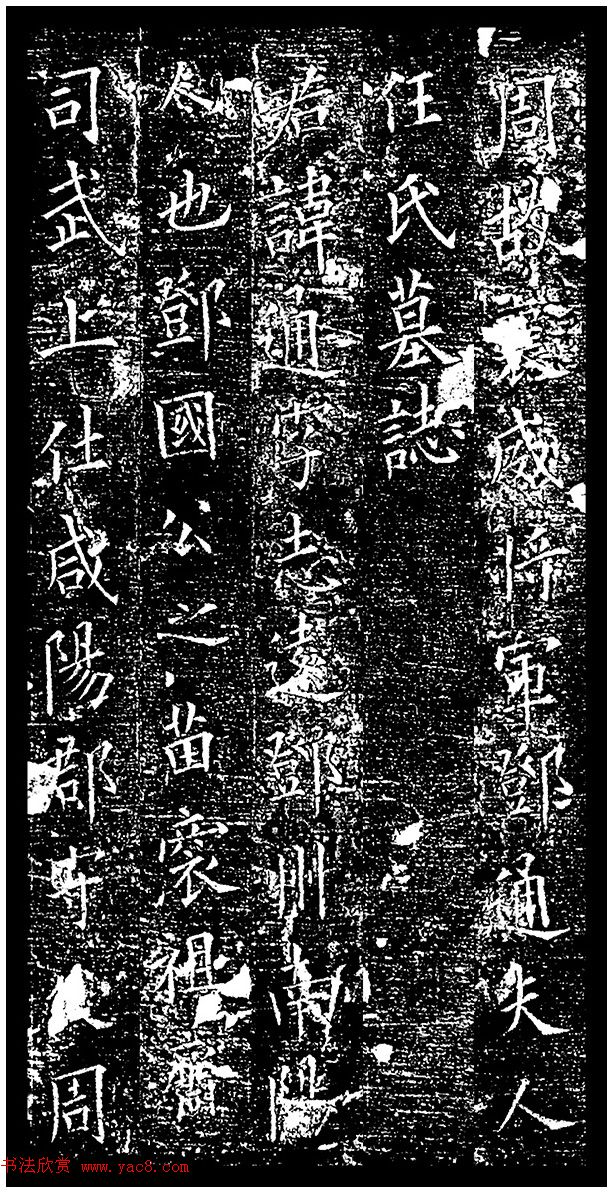 周故襄威將軍鄧通夫人
任氏墓誌
君諱通字志遠鄧州南陽
人也鄧國公之苗裔祖齊
司武上仕咸陽郡守父周
书法欣赏 www.yac8.com